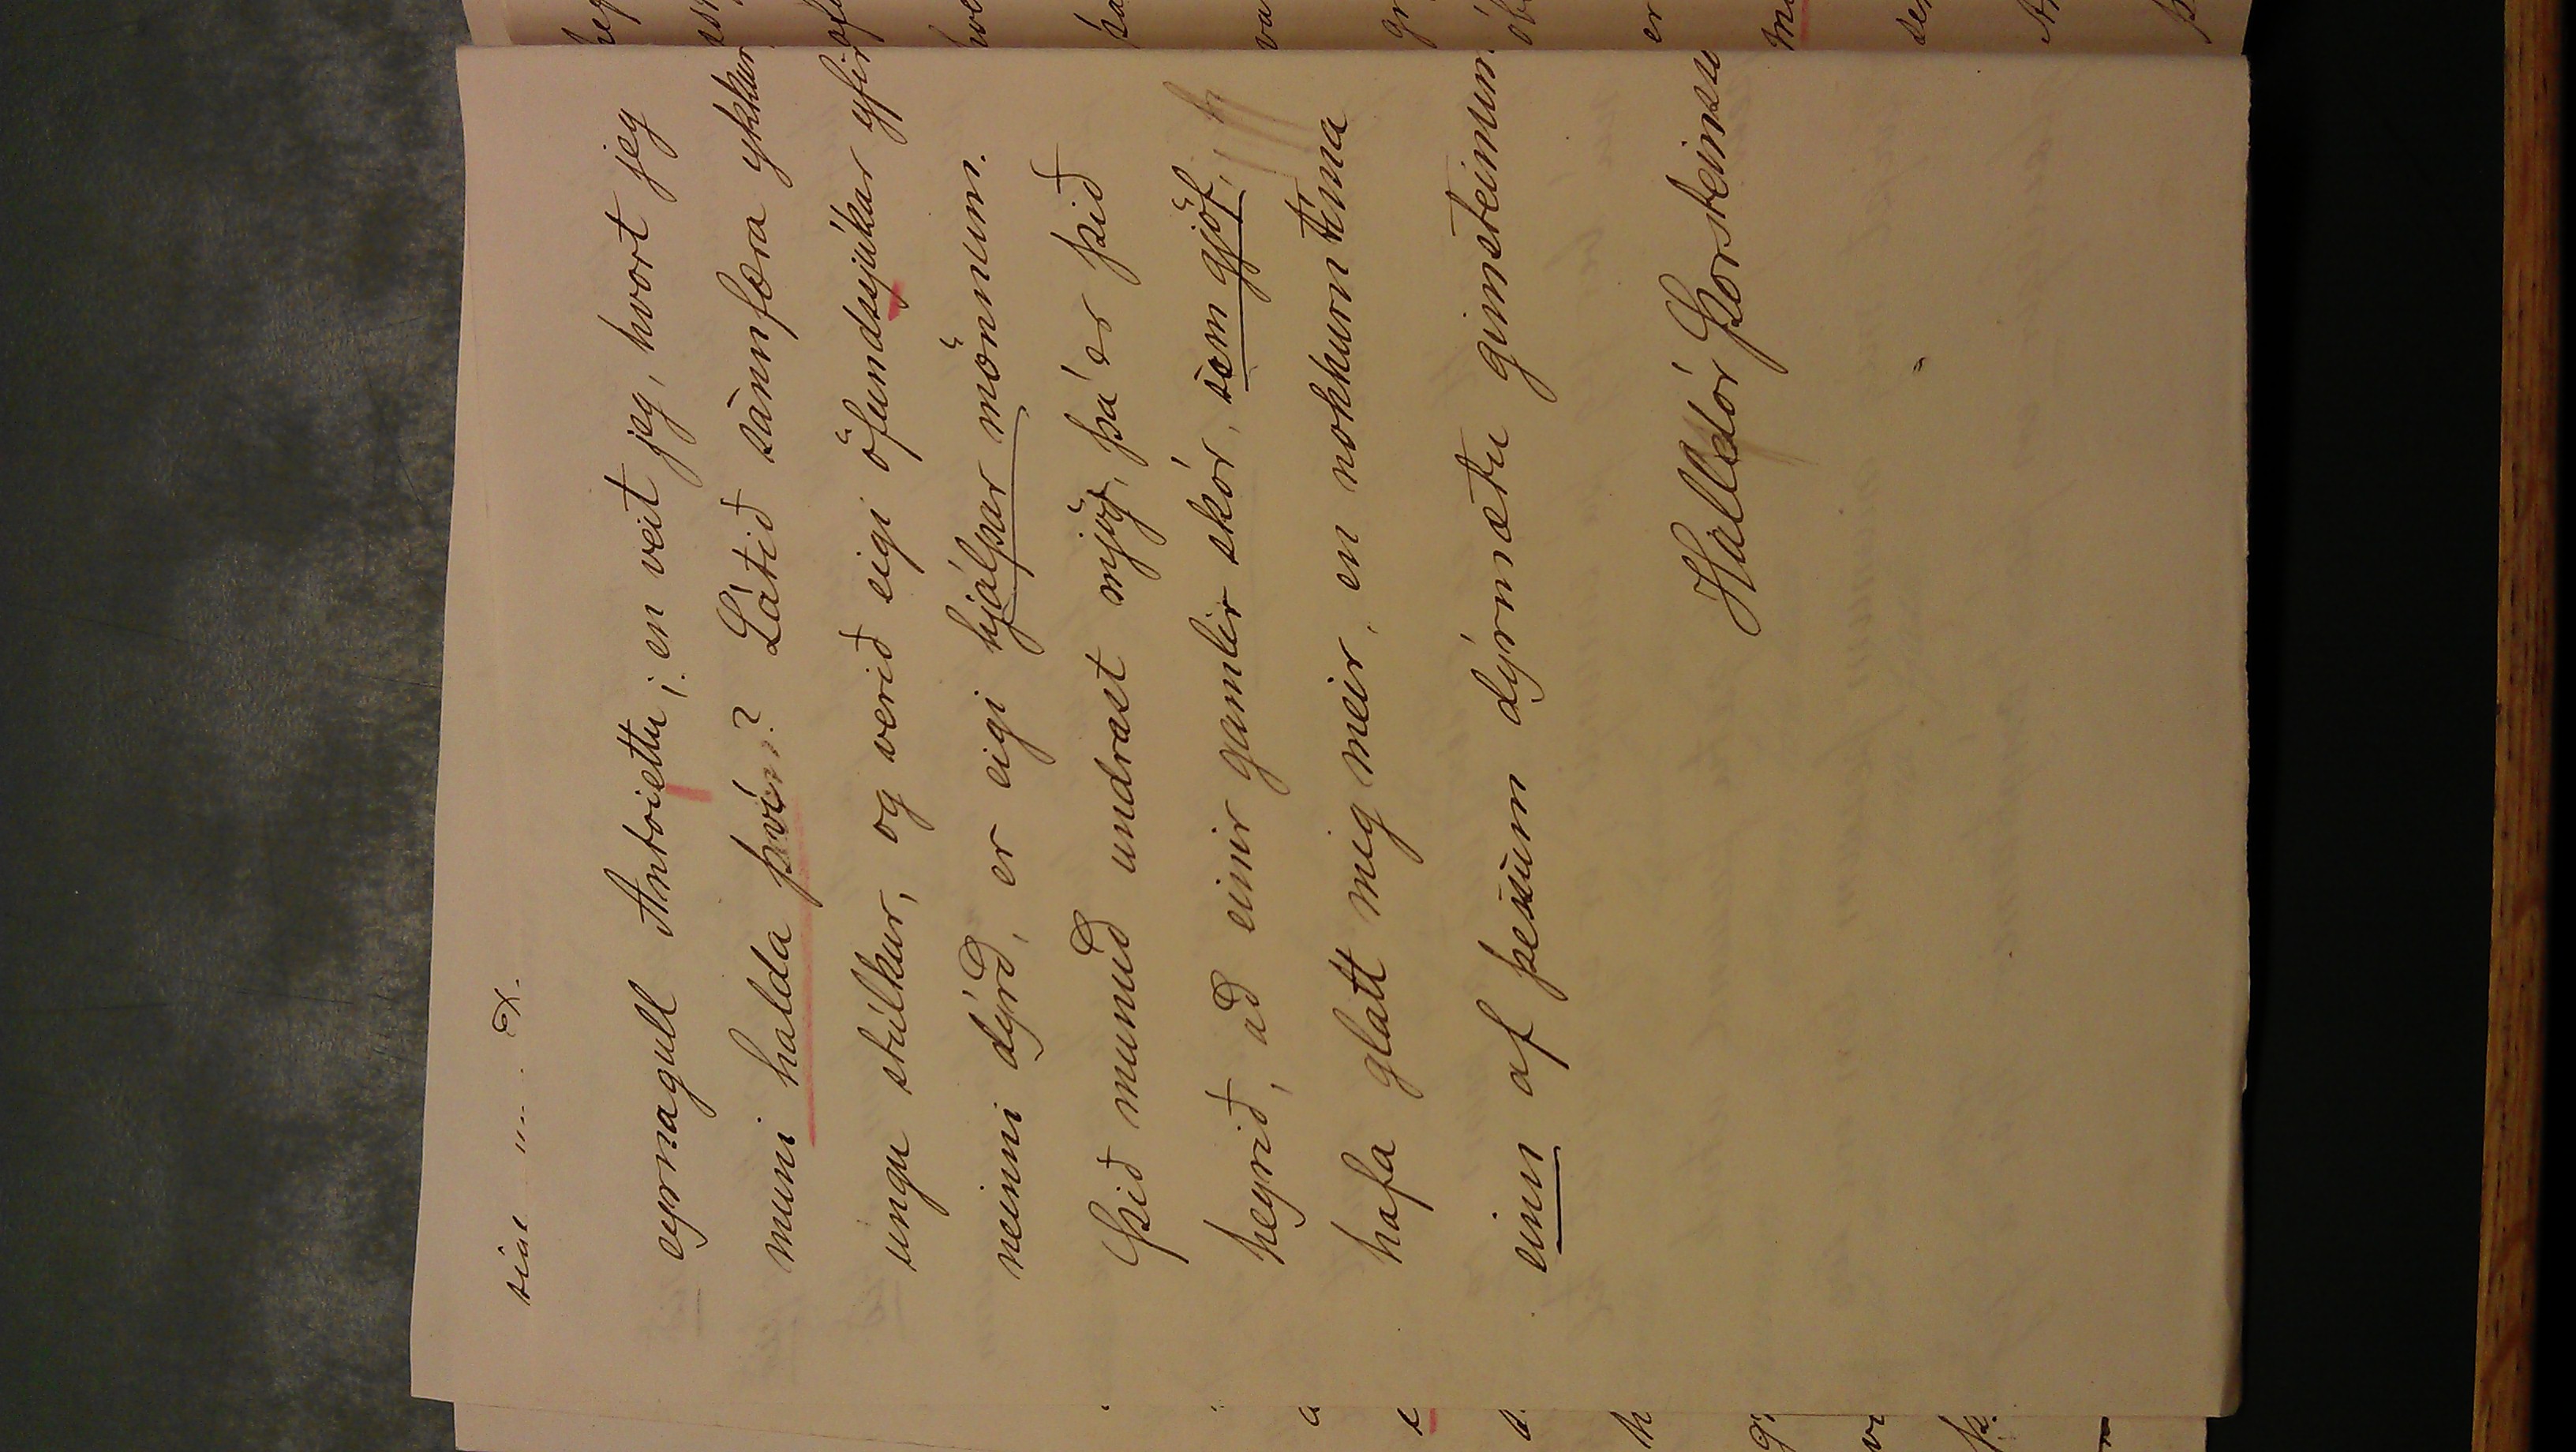 eyrnagull Antoiettu; en veit jeg, hvort jeg
muni halda því? Látið sannfæra ykkur
ungu stúlkur, og verið eigi öfundsjúkar yfir
neinni dýrð, er eigi hjálpar mönnum.
Þið munuð undrast mjög, þá er þið
heyrið, að einir gamlir skór, sem gjöf,
hafa glatt mig meir, en nokkurn tíma
einn af þessum dýrmætu gimsteinum
Halldór Þorsteinsso